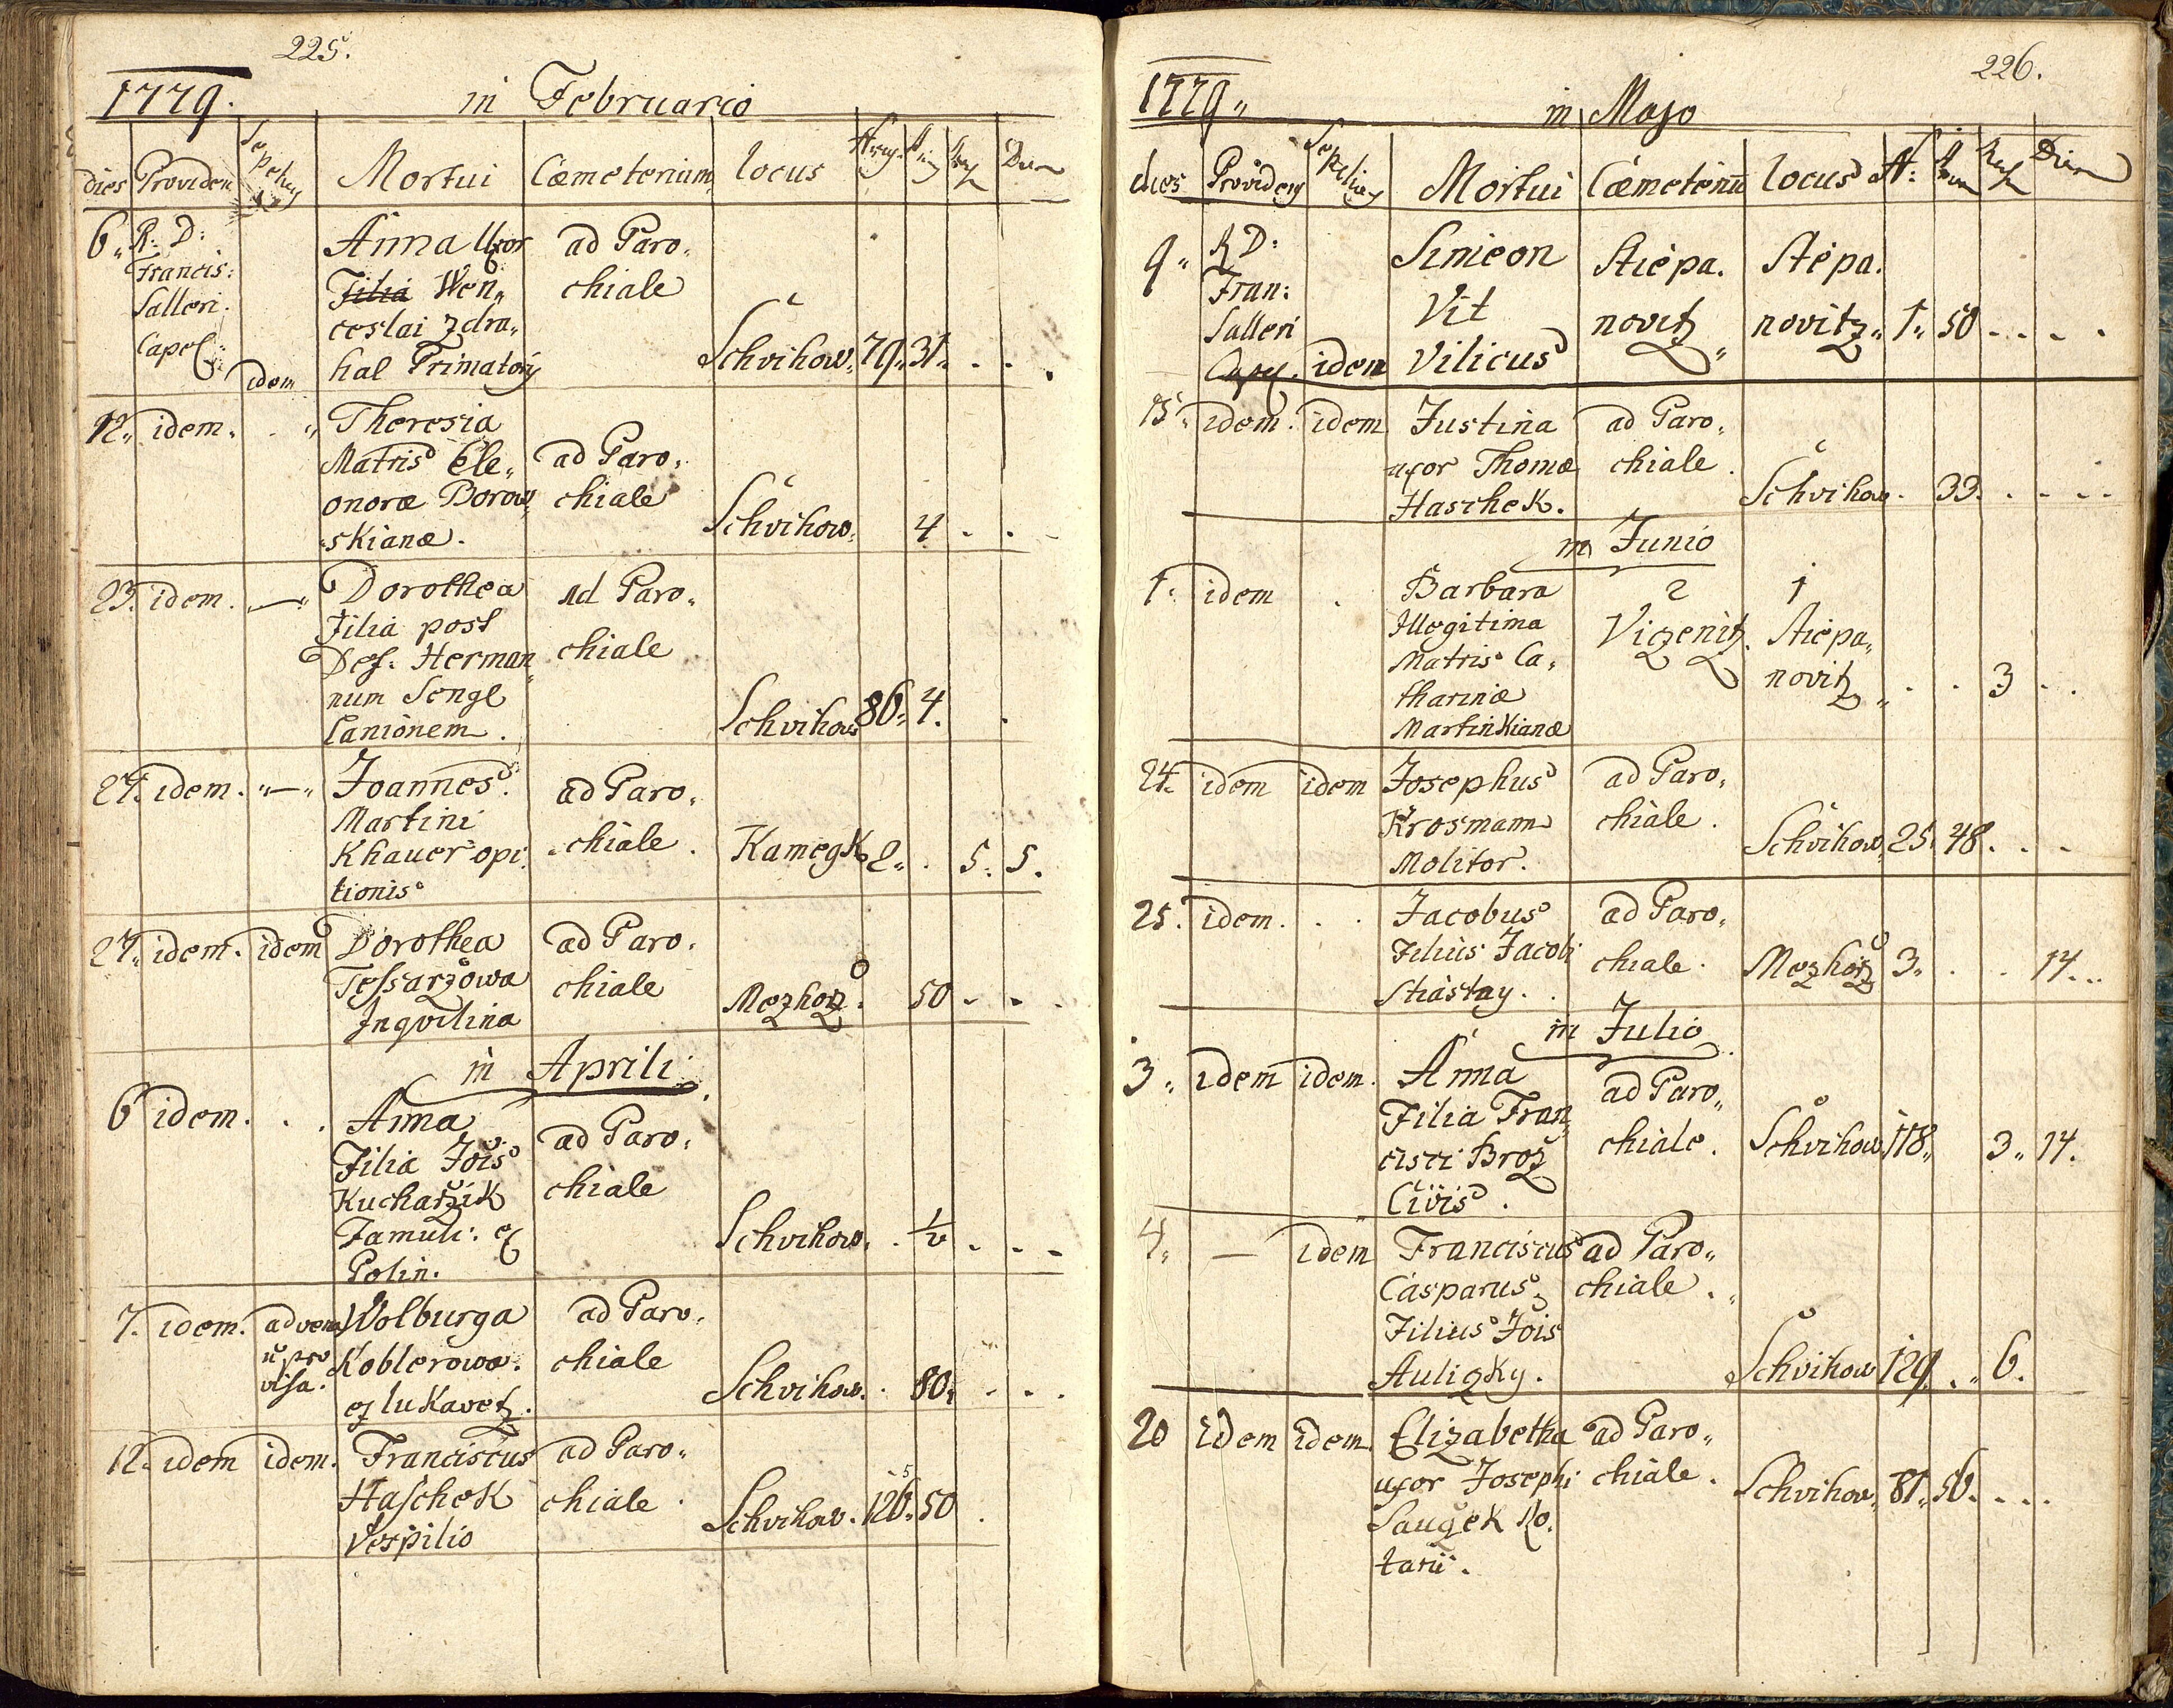 225.
1779. in Februario
dies Providens Sepeliens Mortui Cæmeterium locus Dies
6„ R: D: Francis: Salleri. Capel: idem
Anna Uxor
Filia Wen„
ceslai Zdra„
hal Primatoris
ad Paro„
chiale
Schvihow„ 79„ 31„ . . .
12„ idem„ . „
Theresia
Matris Ele„
onoræ Borow„
skianæ.
ad Paro„
chiale
Schvihow„ 4 . .
23. idem. „—„
Dorothea
Filia post
Def: Herman„
num Sengl
Lanionem.
ad Paro„
chiale
Schvihow 86„ 4. .
24. idem. „—„
Joannes.
Martini
Khauer opi„
lionis
ad Paro„
chiale.
Kamegk 2„ . 5. 5.
27„ idem. idem
Dorothea
Tessarzowa
Inqvilina
ad Paro„
chiale
Mezhorz. 50 . . .
in Aprili
6 idem. . .
Anna
Filia Jois
Kucharzik
Famuli: ex
Polin.
ad Paro„
chiale
Schvihow. . 1/2 . . .
7. idem. advena
ñ pro
visa.
Wolburga
Koblerowa.
ex lukavetz.
ad Paro„
chiale
Schvihow. . 80„ . . .
12. idem idem.
Franciscus
Haschek
Vespilio
ad Paro„
chiale.
Schvihow. 126„ 50 .
5
226.
1779„ in Majo
dies Providens Sepeliens Mortui Cæmeteriũ locus N: Dies
9„ R D:
Fran:
Salleri
Capel. idem
Simeon
Vit
Vilicus
Stiepa.
novitz„
Stiepa.
novitz„ 1„ 50 . . . .
15„ idem. idem
Justina
uxor Thomæ
Haschek.
ad Paro„
chiale.
Schvihow. 33. . . . .
in Junio
1. idem .
Barbara
Illegitima
Matris Ca„
tharinæ
Martinkianæ
2
Viczenitz.
1
Stiepa„
novitz„ . . 3 . .
24. idem idem
Josephus
Krosmann
Molitor.
ad Paro„
chiale.
Schvihow„ 25. 48. . . .
25. idem. . .
Jacobus
Filius Jacobi
Stiastny.
ad Paro„
chiale.
Mezhorz 3„ . . 14..
in Julio
3„ idem idem.
Anna
Filia Fran„
cisci Broz
Civis.
ad Paro„
chiale.
Schvihow 118„ 3„ 14.
4„ — idem
Franciscus
Casparus
Filius Jois
Auliczky.
ad Paro„
chiale. „
Schvihow 129 . „ 6.
20 idem idem.
Elizabetha
uxor Josephi
Sauczek No„
tarii.
ad Paro„
chiale.
Schvihow„ 81„ 56. . . .